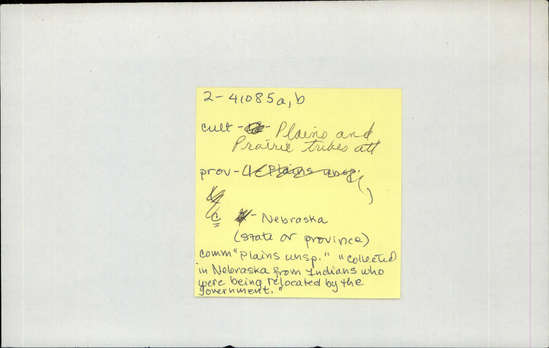 2-41085a,b
cult - Plains and
Prairie tribes att
prov - Plains unsp. ( )
c - Nebraska
(state or province)
comm "Plains unsp." "collected
in Nebraska from Indians who
were being relocated by the
government."